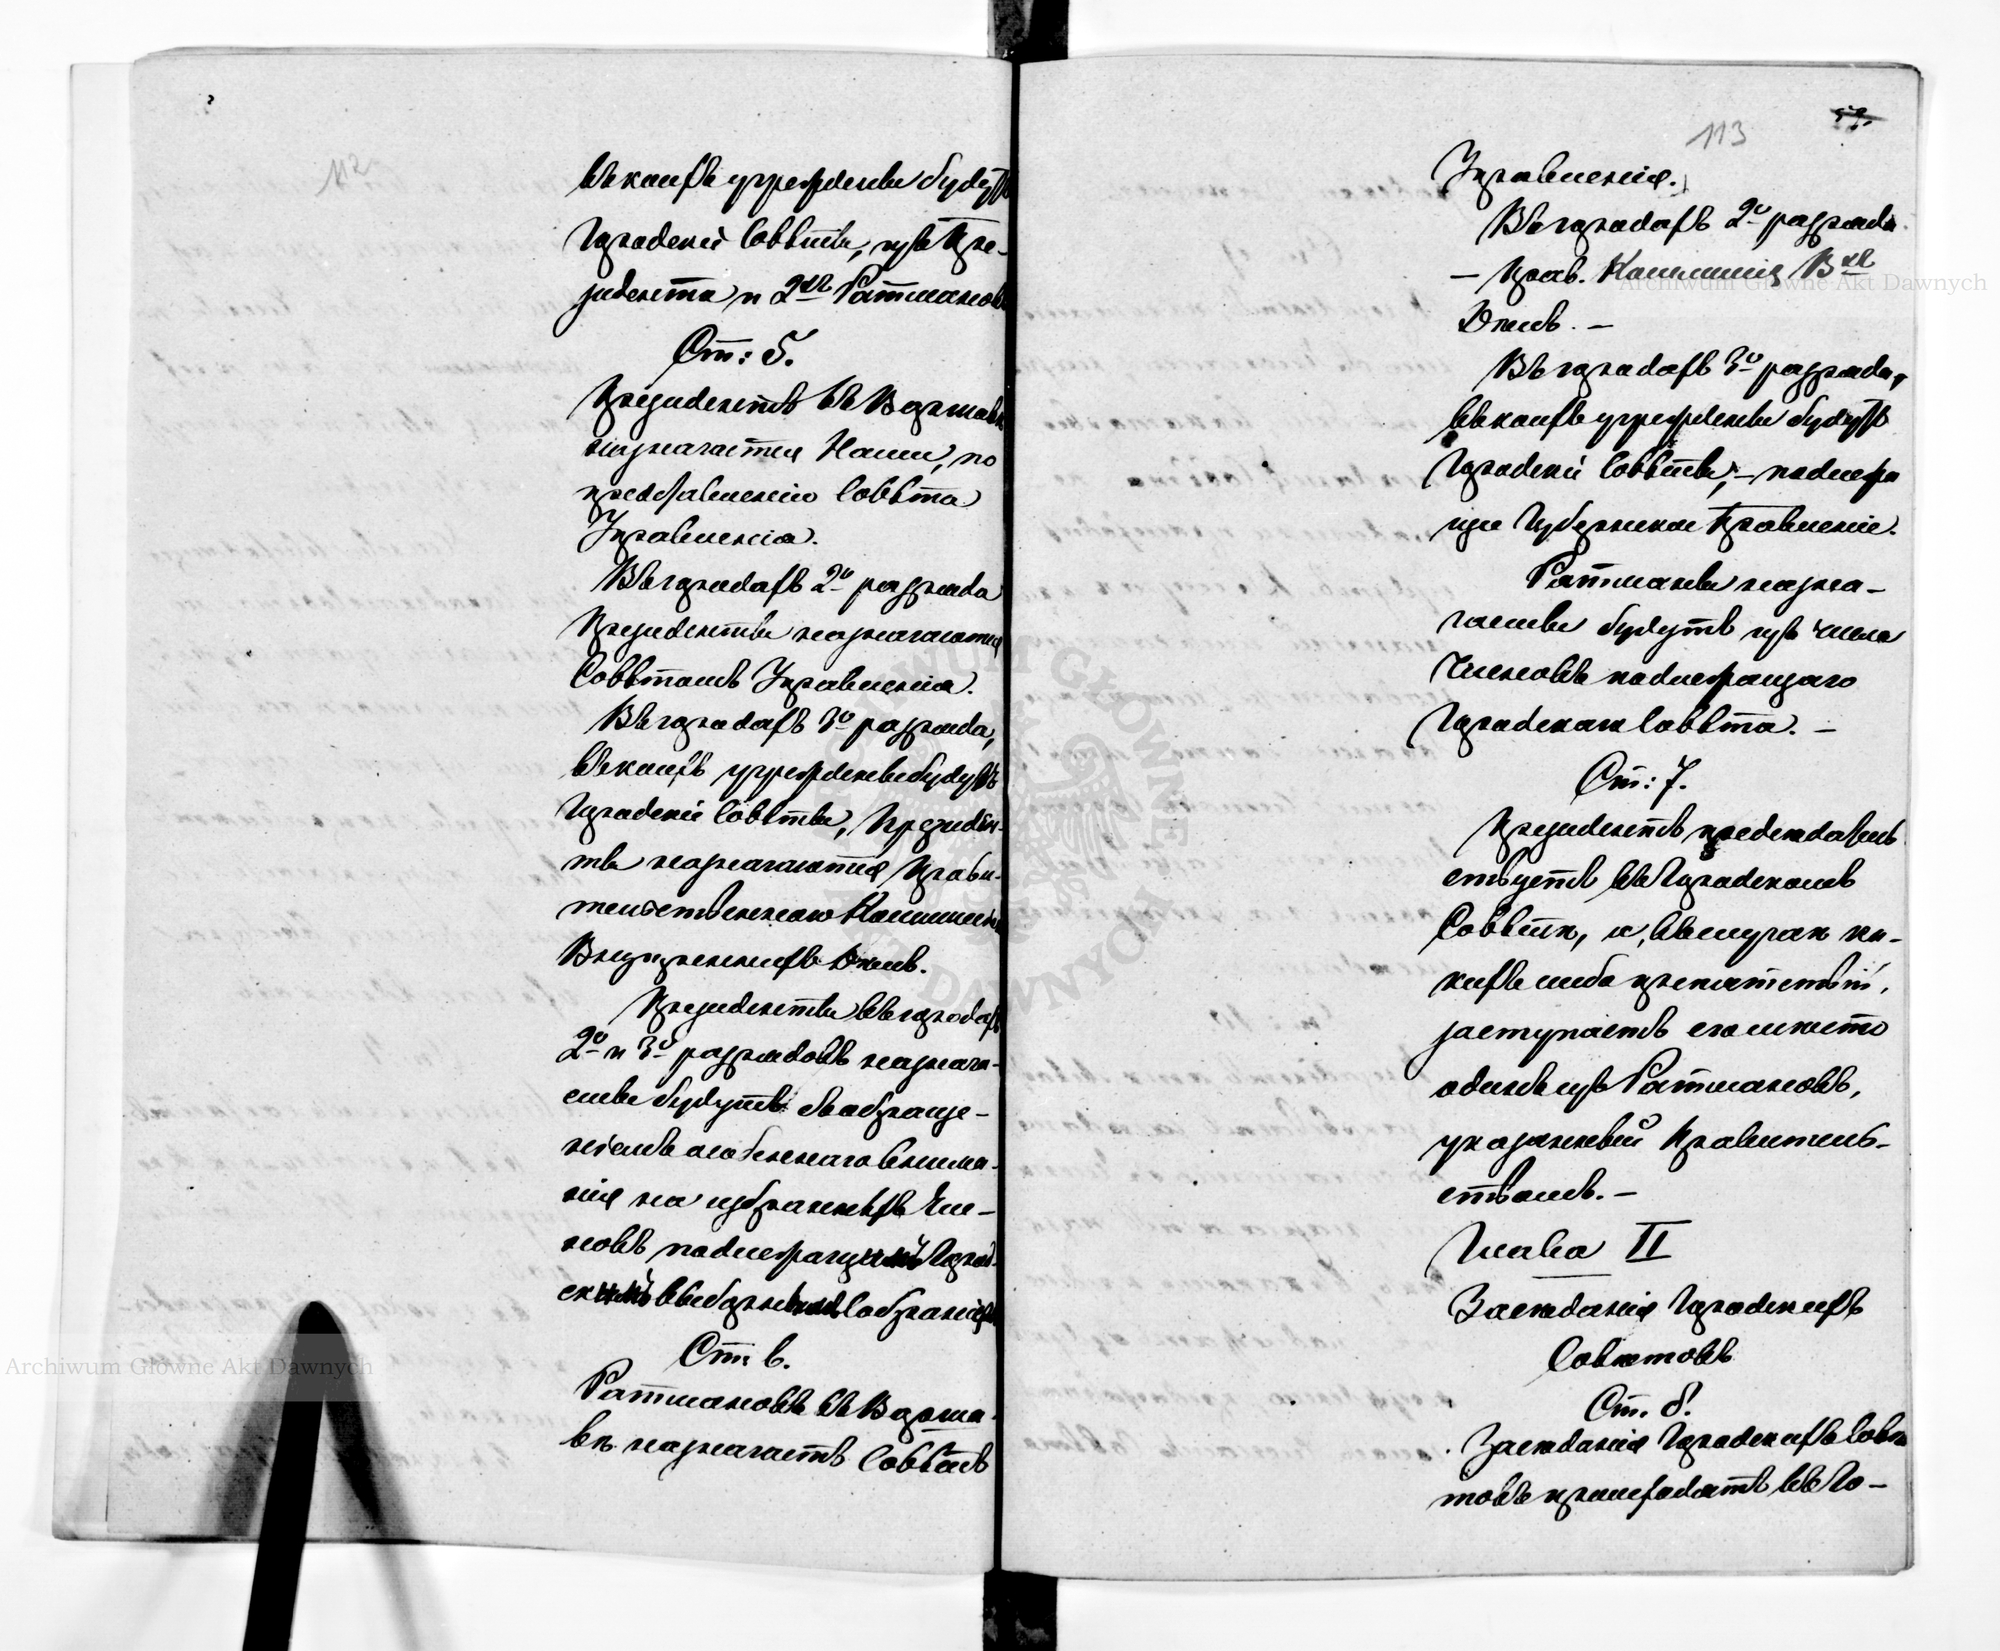 112
въ коихъ учреждены будутъ
Градскіе Совѣты, изъ Пре-
зидента и 2хъ Ратмановъ
Ст: 5.
Президентъ въ Варшавѣ
назначается Нами, по
представленію Совѣта
Управленія.
Въ городахъ 2го разряда
Президенты назначаются
Совѣтомъ Управленія.
Въ городахъ 3го разряда,
въ коихъ учреждены будутъ
Градскіе Совѣты, Президен-
ты назначаются Прави-
тельственною Коммисіею
Внутреннихъ Дѣлъ.
Президенты въ городахъ
2го и 3го разрядовъ назнача-
емы будутъ съ обраще-
ніемъ особеннаго внима-
нія на избранныхъ Чле-
новъ подлежащими Град-
скими выборными собраніями
Ст: 6.
Ратмановъ въ Варша-
вѣ назначаетъ Совѣтъ
113
Управленія.
Въ городахъ 2го разряда
— Прав. Коммисія Вхъ
Дѣлъ. —
Въ городахъ 3го разряда,
въ коихъ учреждены будутъ
Градскіе Совѣты, — подлежа
щее Губернское Правленіе.
Ратманы назна-
чаемы будутъ изъ числа
Членовъ подлежащаго
Градскаго Совѣта. —
Ст: 7.
Президентъ предсѣдатель
ствуетъ въ Градскомъ
Совѣтѣ, и, въ случаѣ ка-
кихъ либо препятствій,
заступаетъ его мѣсто
одинъ изъ Ратмановъ,
указанный Правитель-
ствомъ. —
Глава II
Засѣданія Градскихъ
Совѣтовъ
Ст. 8.
Засѣданія Градскихъ Совѣ
товъ происходятъ въ Го-
Archiwum Główne Akt Dawnych
Archiwum Główne Akt Dawnych
ARCHIWUM GŁÓWNE AKT DAWNYCH